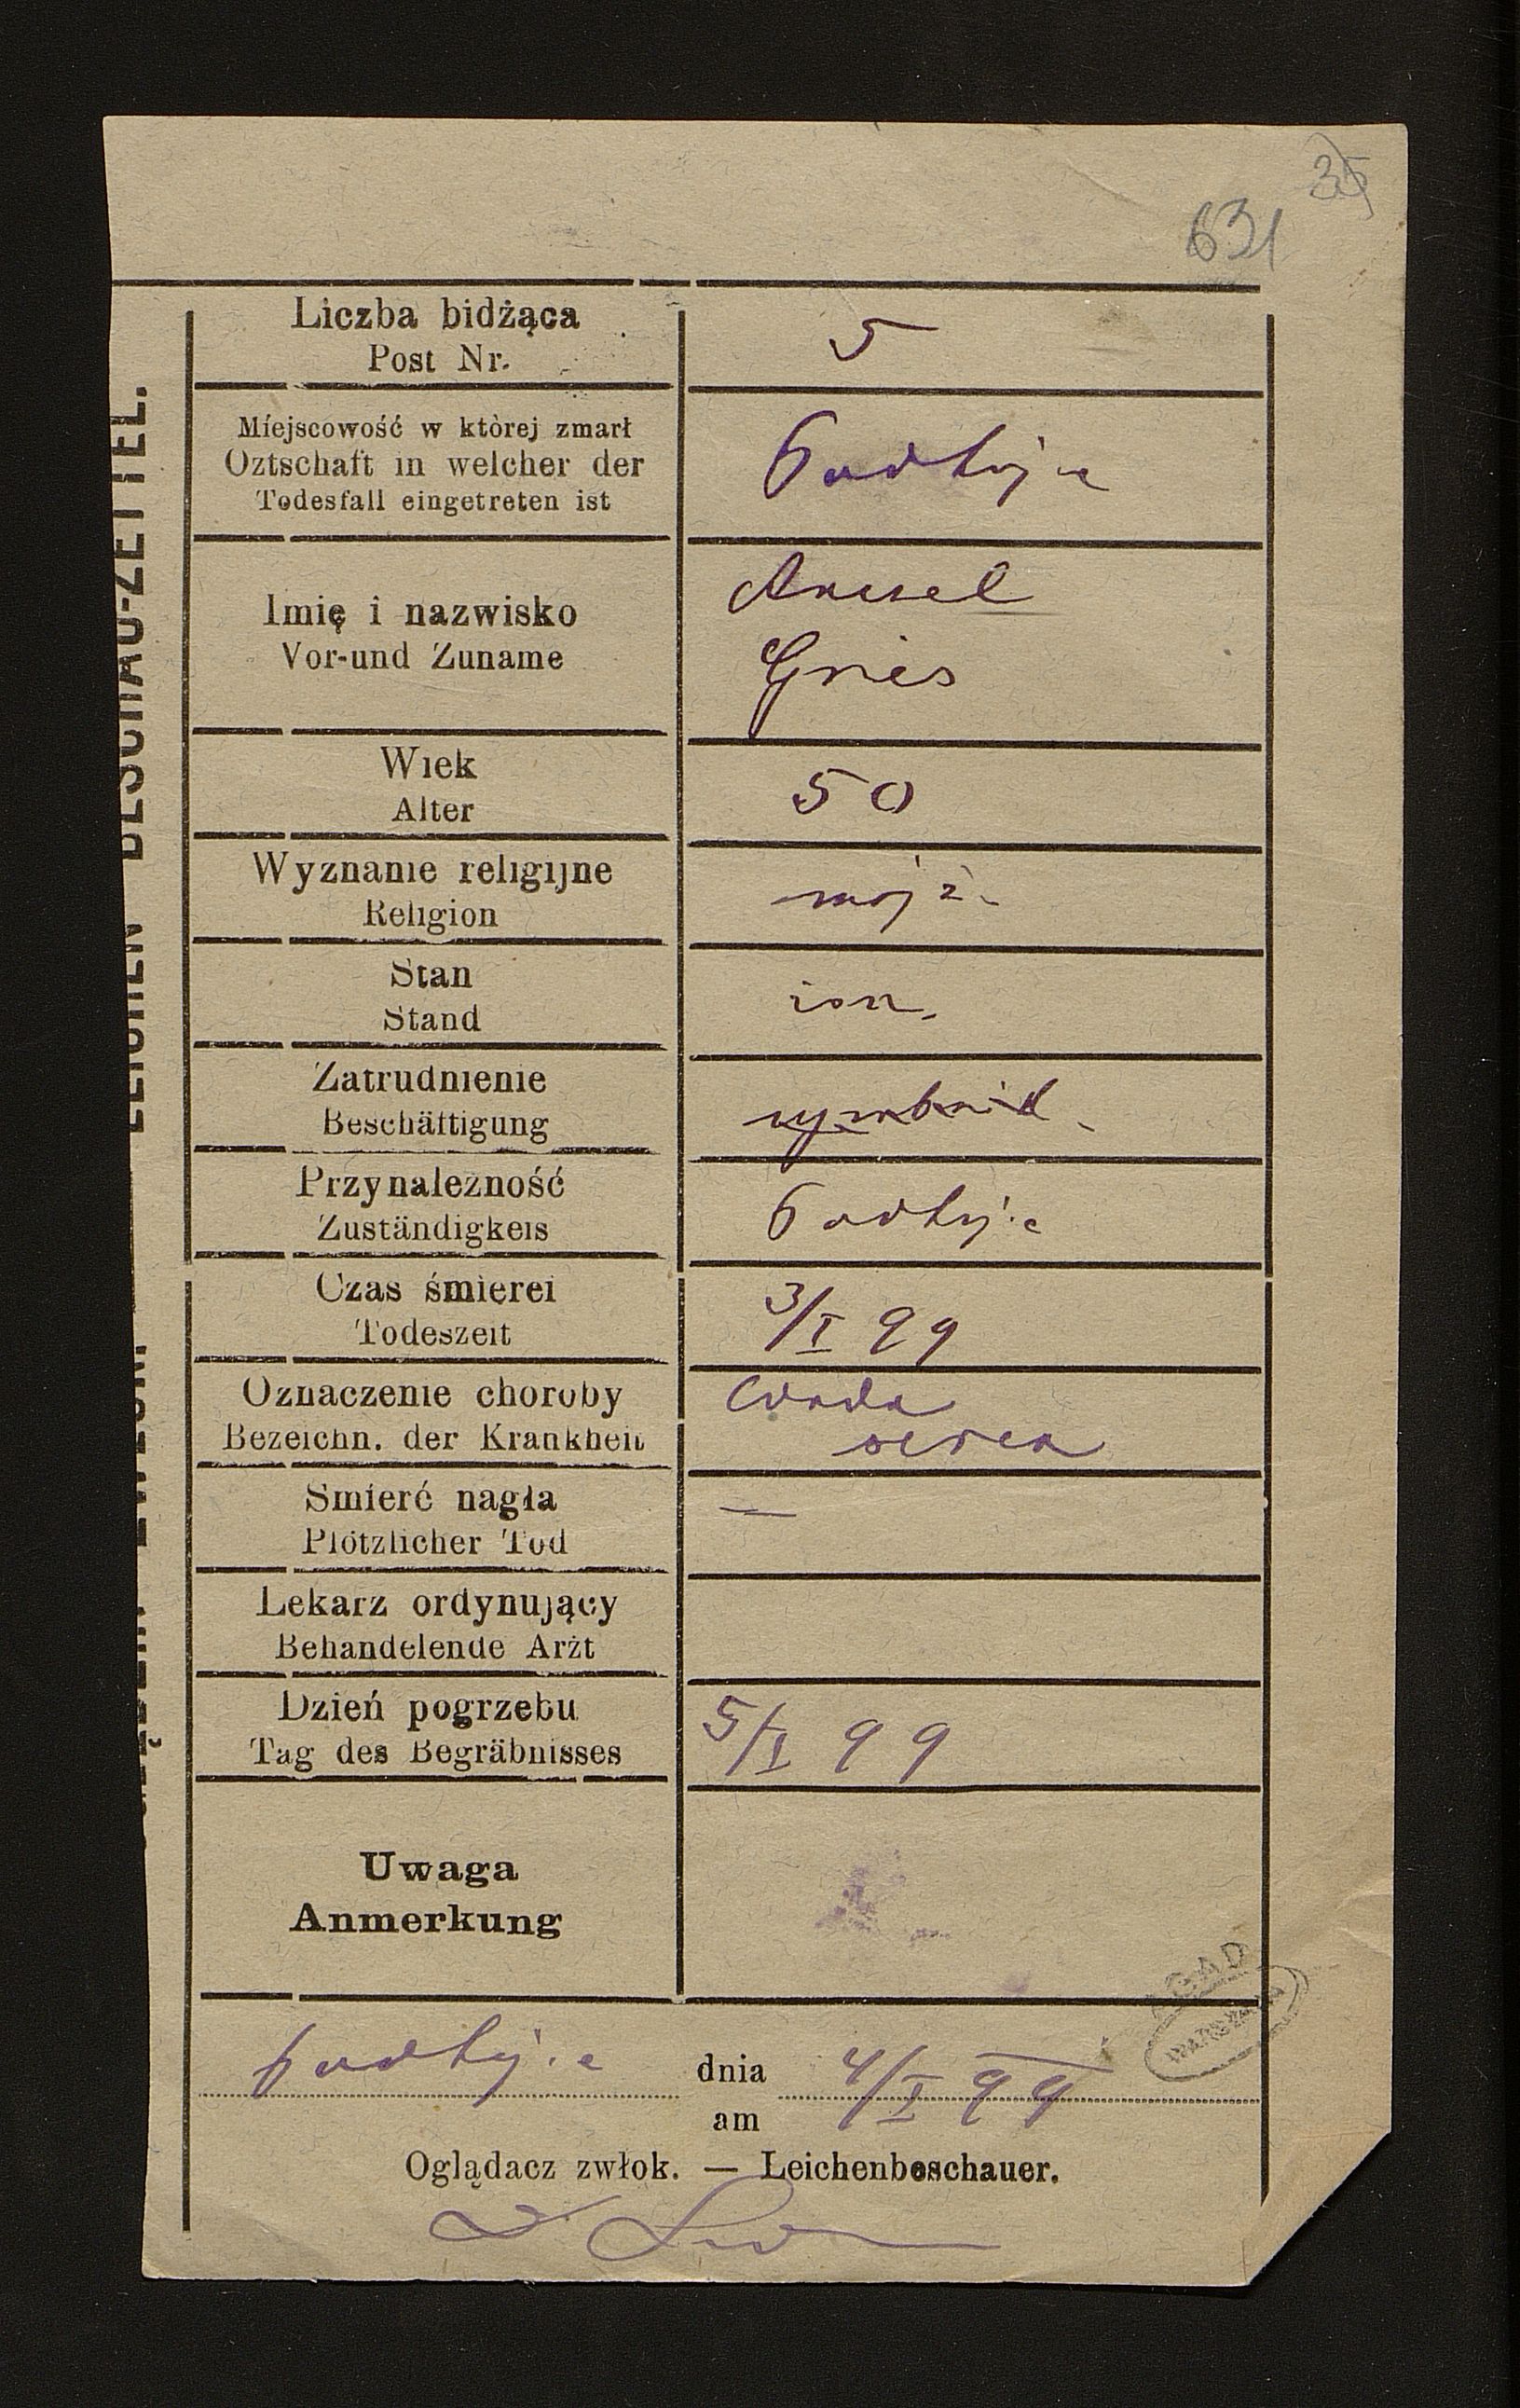 35
631
LEICHEN BESCHAU-ZETTEL.
Liczba bidżąca
Post Nr.
5
Miejscowość w ktòrej zmarł
Oztschaft in welcher der
Todesfall eingetreten ist
Podhajce
Imię i nazwisko
Vor-und Zuname
Gries
Wiek
Alter
50
Wyznanie religijne
Religion
mojż.
Stan
Stand
żon.
Zatrudnienie
Beschäftigung
Przynależność
Zuständigkeis
Podhajce
Czas śmierei
Todeszeit
3/I 99
Oznaczenie choroby
Bezeichn. der Krankheit
Wada
serca
Smierć nagła
Plötzlicher Tod
—
Lekarz ordynujący
Behandelende Arżt
Dzień pogrzebu
Tag des Begräbnisses
5/I 99
Uwaga
Anmerkung
AGAD
WARSZAWA
Podhajce dnia 4/I 99
am
Oglądacz zwłok. — Leichenbeschauer.